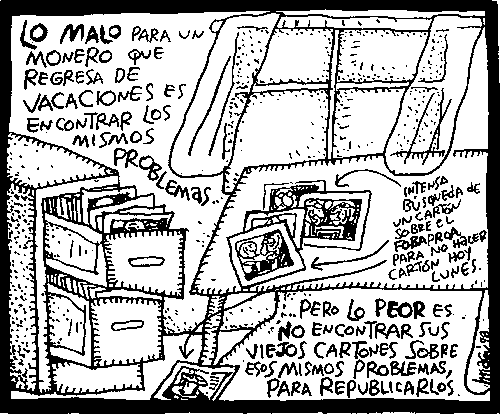 LO MALO PARA UN
MONERO QUE
REGRESA DE
VACACIONES ES
ENCONTRAR LOS
MISMOS
PROBLEMAS...
INTENSA
BUSQUEDA DE
UN CARTÓN
SOBRE EL
FOBAPROA
PARA NO HACER
CARTÓN HOY
LUNES.
...PERO LO PEOR ES
NO ENCONTRAR SUS
VIEJOS CARTONES SOBRE
ESOS MISMOS PROBLEMAS,
PARA REPUBLICARLOS.